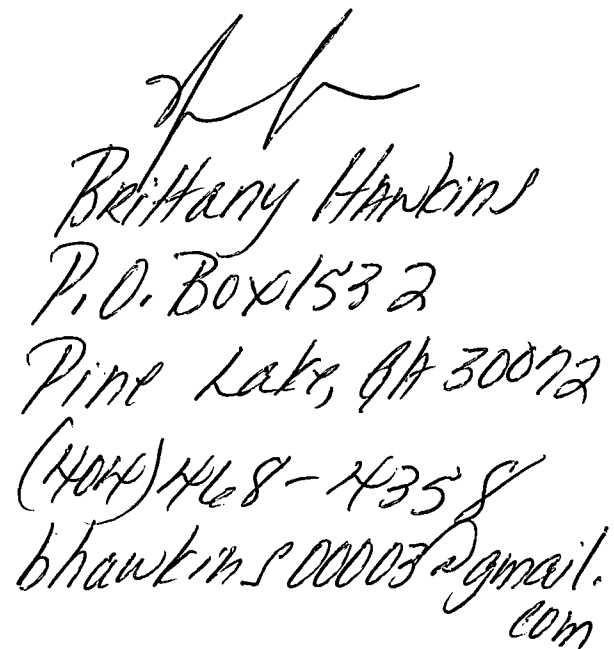 Brittany Hawkins
P.O. Box 1532
Pine Lake, GA 30072
(404) 468-4358
bhawkins00003@gmail.
com